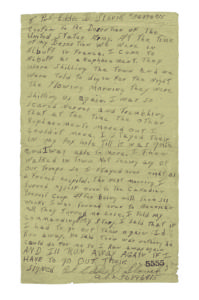 I Pvt. Eddie D. Slovik 36896415
confess to the Desertion of the
United States Army. At the time
of my Desertion we were in
Albuff in France. I came to
Albuff as a Replacement. They
were shilling the town and we
were told to dig in for the night.
The flowing morning they were
shilling us again. I was so
scared nerves and trembling
that at the time the other
Replacements moved out I
couldn't move. I stayed their
in my fox hole till it was quite
and I was able to move. I then
walked in town. Not seeing any of
our troops so I stayed over night at
a French hospital. The next morning I
turned myself over to the Canadian
Provost Corp. After being with them six
weeks I was turned over to American
M.P. They turned me lose. I told my
commanding officer my story. I said that if
I had to go out their again Id
run away. He said their was nothing he
could do for me so I ran away again
AND ILL RUN AWAY AGAIN IF I
HAVE TO GO OUT THEIR
5555
Signed Pvt. Eddie D. Slovik
A.S.N. 36896415